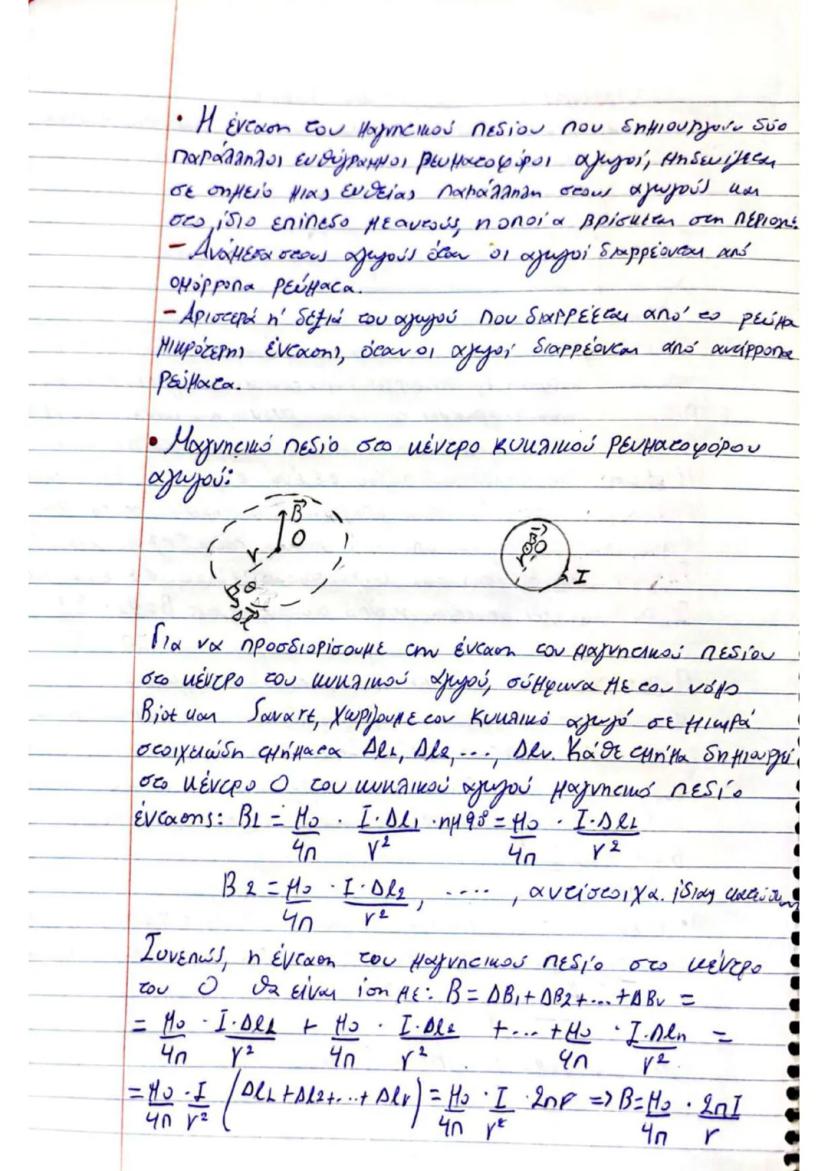 • Η ένταση του μαγνητικού πεδίου που δημιουργούν δύο
παράλληλοι ευθύγραμμοι ρευματοφόροι αγωγοί, μηδενίζεται
σε σημείο μιας ευθείας παράλληλη στους αγωγούς και
στο ίδιο επίπεδο με αυτούς, η οποία βρίσκεται στη περιοχή:
– Ανάμεσα στους αγωγούς όταν οι αγωγοί διαρρέονται από
ομόρροπα ρεύματα.
– Αριστερά ή δεξιά του αγωγού που διαρρέεται από το ρεύμα
μικρότερης έντασης, όταν οι αγωγοί διαρρέονται από αντίρροπα
ρεύματα.
• Μαγνητικό πεδίο στο κέντρο κυκλικού ρευματοφόρου
αγωγού:
B⃗
O
r
θ
Δl⃗
B⃗
O
r
I
Για να προσδιορίσουμε την ένταση του μαγνητικού πεδίου
στο κέντρο του κυκλικού αγωγού, σύμφωνα με τον νόμο
Biot και Savart, χωρίζουμε τον κυκλικό αγωγό σε μικρά
στοιχειώδη τμήματα Δl₁, Δl₂, ..., Δlν. Κάθε τμήμα δημιουργεί
στο κέντρο O του κυκλικού αγωγού μαγνητικό πεδίο
έντασης: B₁ = μ₀/4π · I·Δl₁/r² · ημ90° = μ₀/4π · I·Δl₁/r²
B₂ = μ₀/4π · I·Δl₂/r², ...., αντίστοιχα. ίδιας
Συνεπώς, η ένταση του μαγνητικού πεδίο στο κέντρο
του O θα είναι ίση με: B = ΔB₁ + ΔB₂ + ... + ΔBν =
= μ₀/4π · I·Δl₁/r² + μ₀/4π · I·Δl₂/r² + ... + μ₀/4π · I·Δlη/r² =
= μ₀/4π · I/r² (Δl₁ + Δl₂ + ... + Δlν) = μ₀/4π · I/r² · 2πr => B = μ₀/4π · 2πI/r